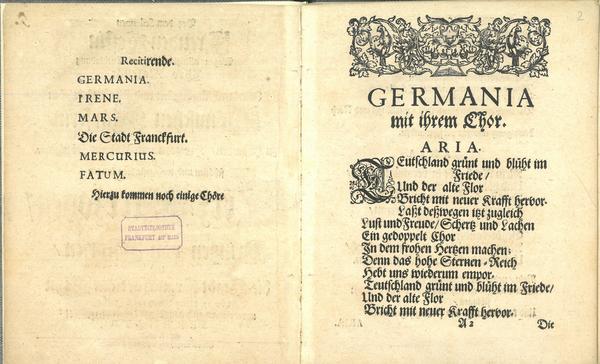 2
Recitirende.
GERMANIA.
IRENE.
MARS.
Die Stadt Franckfurt.
MERCURIUS.
FATUM.
Hierzu kommen noch einige Chöre
STADTBIBLIOTHEK
FRANKFURT AM MAIN
2
GERMANIA
mit ihrem Chor.
ARIA.
TEutschland grünt und blüht im
Friede/
Und der alte Flor
Bricht mit neuer Krafft hervor.
Laßt deßwegen itzt zugleich
Lust und Freude/ Schertz und Lachen
Ein gedoppelt Chor
In dem frohen Hertzen machen:
Denn das hohe Sternen-Reich
Hebt uns wiederum empor.
Teutschland grünt und blüht im Friede/
Und der alte Flor
Bricht mit neuer Krafft hervor.
A 2
Die